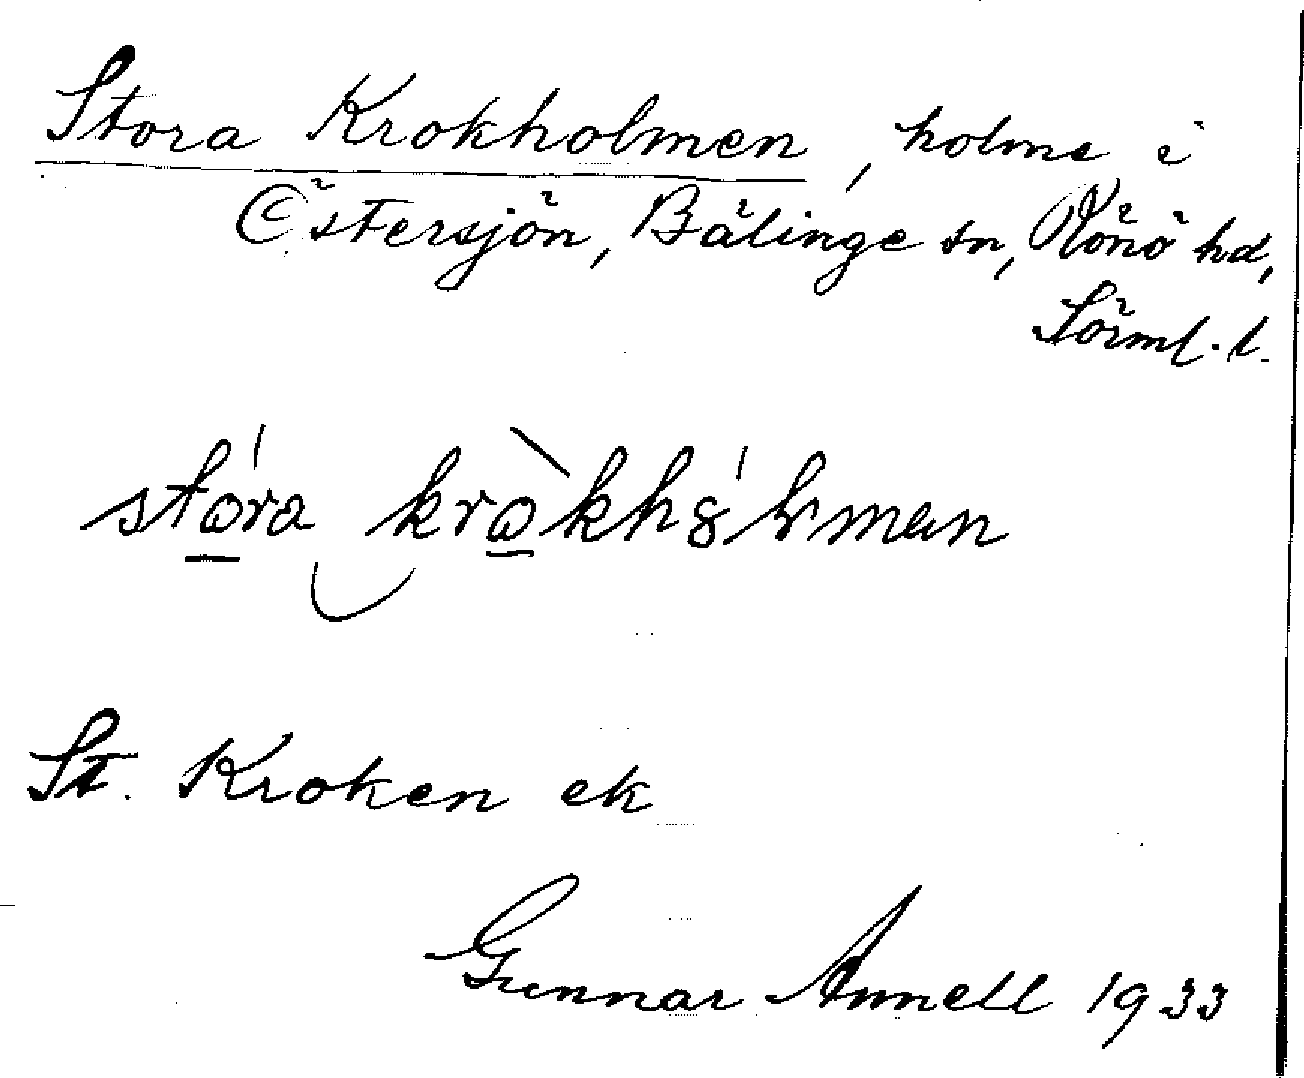 Stora Krokholmen, holme i
Östersjön, Bälinge sn, Rönö hd,
Sörml. l.
sto̱ʹra kro̱ˋkh8ʹlman
St. Kroken ek
Gunnar Annell 1933